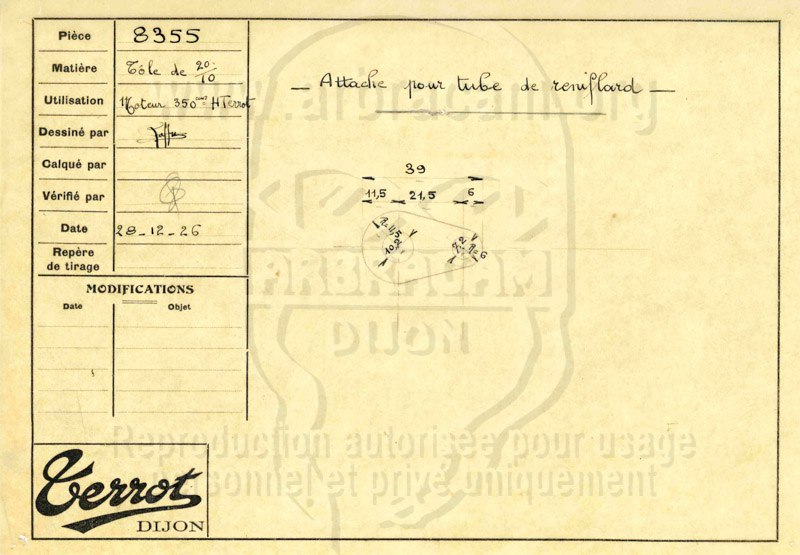 Pièce 8355
Matière Tôle de 20/10
Utilisation Moteur 350 cm3 H Terrot
Dessiné par
Calqué par
Vérifié par
Date 28-12-26
Repère
de tirage
MODIFICATIONS
Date Objet
— Attache pour tube de reniflard —
39
11,5 21,5 6
R=11,5
10,2
7,2
R=6
www.arbracam.org
ARBRACAM
DIJON
Reproduction autorisée pour usage
personnel et privé uniquement
Terrot
DIJON